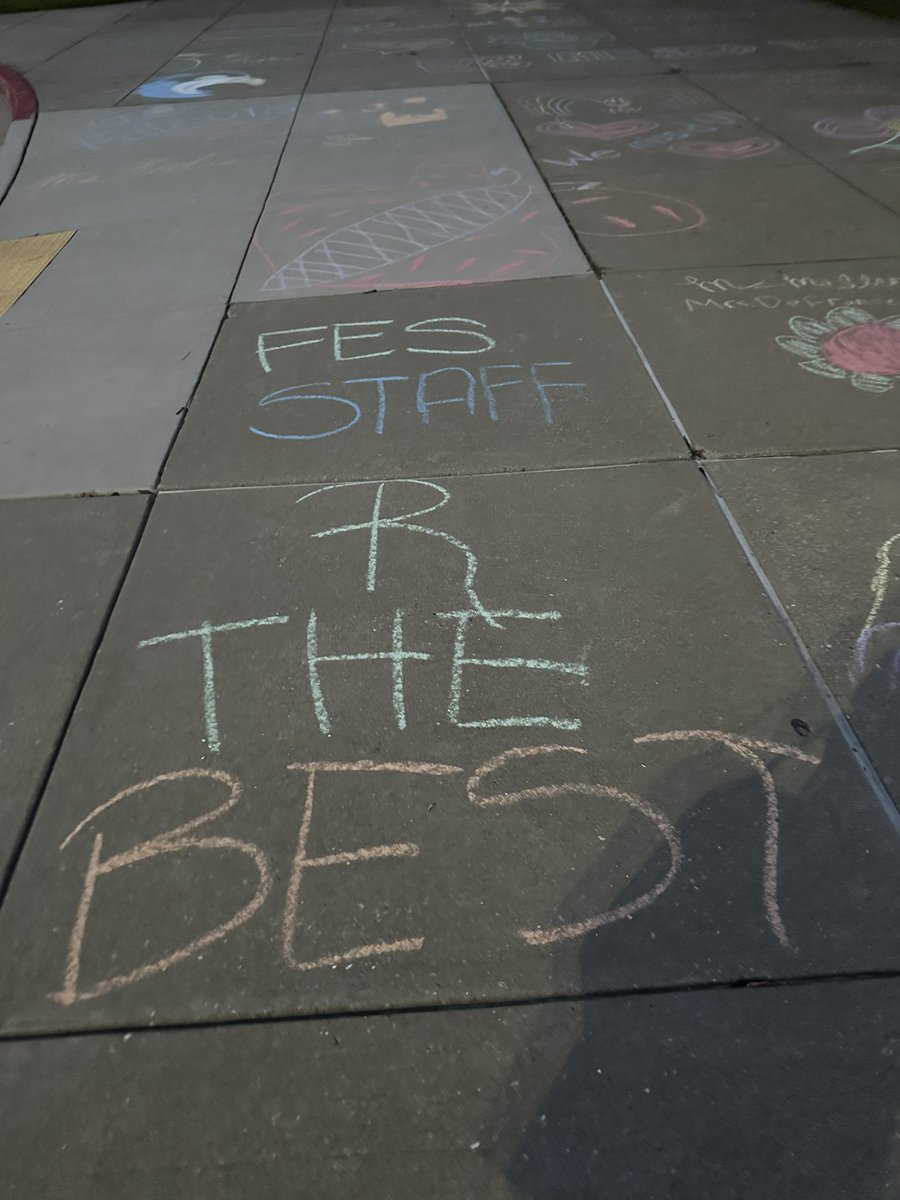 We
FES
STAFF
R
THE
BEST